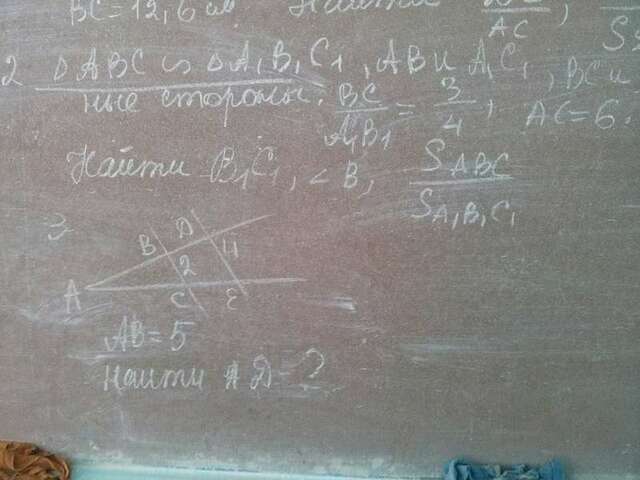 BC = 12,6 см Найти /AC,
2 ΔABC ∽ ΔA₁B₁C₁, AB и A₁C₁, BC и
ные стороны. BC/A₁B₁ = 3/4, AC = 6.
Найти B₁C₁, ∠B, S ABC/S A₁B₁C₁
3
D
B 4
2
A C E
AB = 5
Найти AD - ?